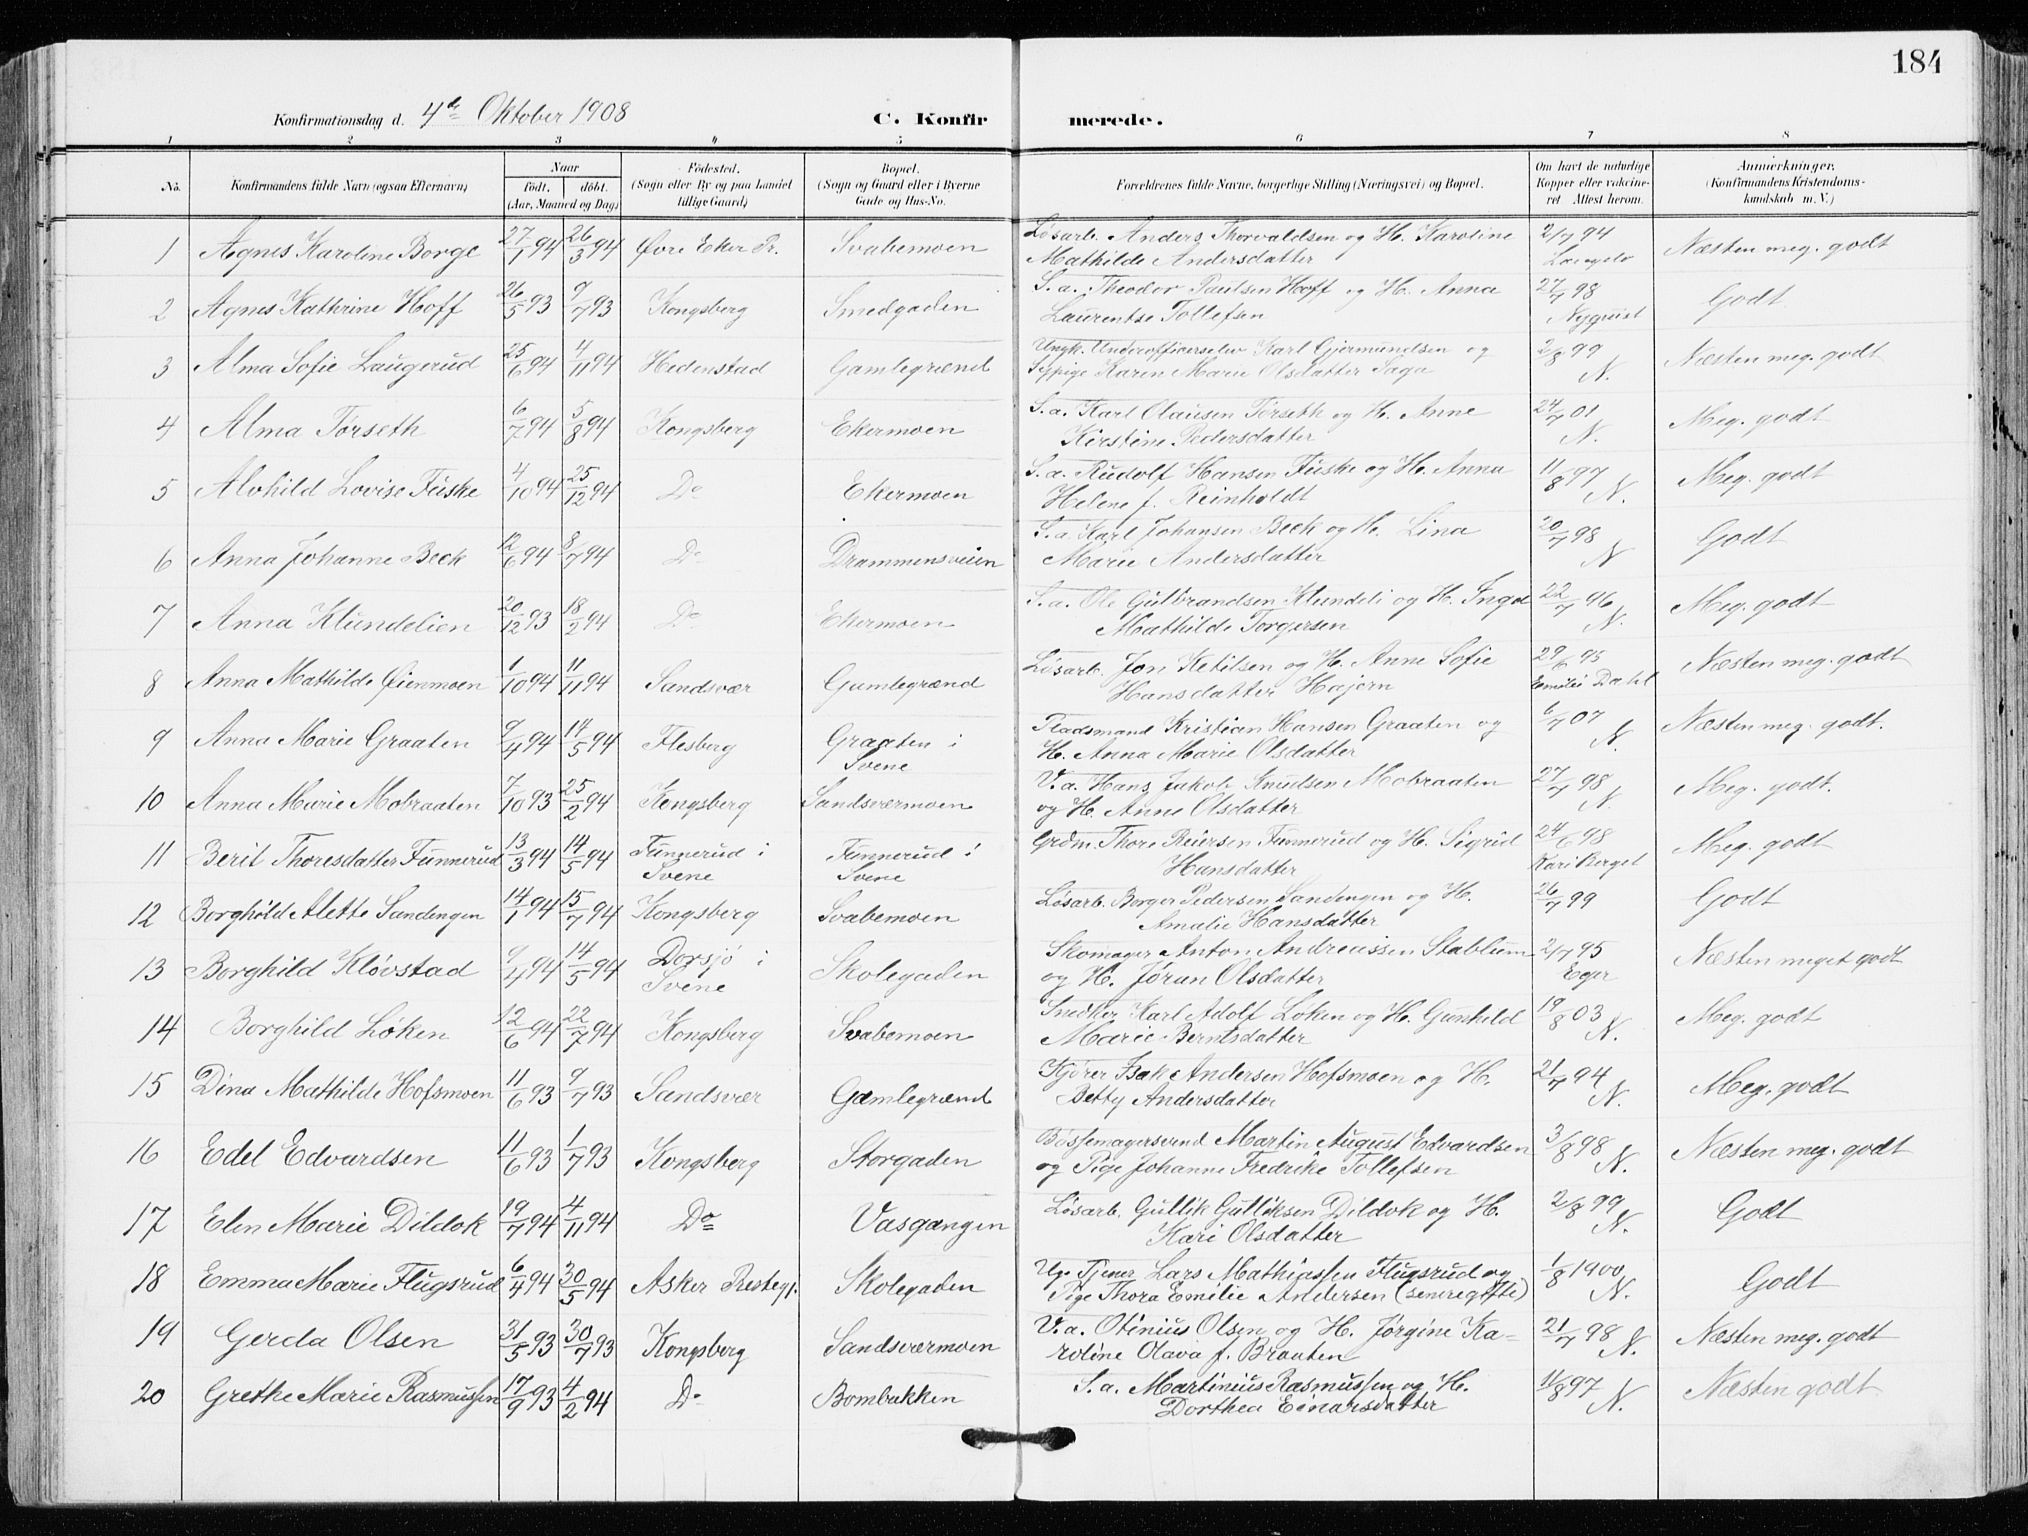 184
Konfirmationsdag d. 4de Oktober 1908 C. Konfirmerede.
1 2 3 4 5 6 7 8
No. Konfirmandens fulde Navn (ogsaa Efternavn) Naar født. døbt. (Aar, Maaned og Dag) Födested. (Sogn eller By og paa Landet tillige Gaard) Bopæl. (Sogn og Gaard eller i Byerne Gade og Hus-No. Forældrenes fulde Navne, borgerlige Stilling (Næringsvei) og Bopæl. Om havt de naturlige Kopper eller vakcineret. Attest herom. Anmærkninger. (Konfirmandens Kristendomskundskab m. V.)
1 Agnes Karoline Borge 27/1 94 26/3 94 Øvre Eker Pr. Svabemoen Løsarb. Anders Thorvaldsen og H. Karoline 2/7 94 Næsten meg. godt
Mathilde Andersdatter
2 Agnes Kathrine Hoff 26/5 93 9/7 93 Kongsberg Smedgaden S.a. Theodor Paulsen Hoff og H. Anna 27/7 98 Godt
Laurentse Tollefsen Nyquist
3 Alma Sofie Laugerud 25/6 94 4/11 94 Hedenstad Gamlegrænd Ungk. Underofficerselev Karl Gjermundsen og 2/8 99 Næsten meg. godt
Sypige Karen Marie Olsdatter Saga N.
4 Alma Tørseth 6/7 94 5/8 94 Kongsberg Ekermoen S.a. Karl Olausen Tørseth og H. Anne 24/7 01 Meg. godt
Kirstine Pedersdatter N.
5 Alvhild Lovise Fuske 4/10 94 25/12 94 Do Ekermoen S.a. Rudolf Hansen Fuske og H. Anna 11/8 97 Meg. godt
Helene f. Reinholdt N.
6 Anna Johanne Beck 12/6 94 8/7 94 Do Drammensveien S.a. Karl Johansen Beck og H. Lina 20/7 98 Godt
Marie Andersdatter N
7 Anna Klundelien 20/12 93 18/2 94 Do Ekermoen S.a. Ole Gulbrandsen Klundeli og H. Inga 22/7 96 Meg. godt
Mathilde Torgersen N.
8 Anna Mathilde Øienmoen 1/10 94 11/11 94 Sandsvær Gamlegrænd Løsarb. Jon Ketilsen og H. Anne Sofie 29/6 95 Næsten meg. godt
Hansdatter Hajern Emilie Dahl
9 Anna Marie Graaten 9/4 94 14/5 94 Flesberg Graaten i Pladsmand Kristian Hansen Graaten og 6/7 07 Næsten meg. godt.
Svene H. Anna Marie Olsdatter N.
10 Anna Marie Mobraaten 7/10 93 25/2 94 Kongsberg Sandsværmoen V.a. Hans Jakob Knudsen Mobraaten 27/7 98 Meg. godt.
og H. Anne Olsdatter N.
11 Berit Thoresdatter Funnerud 13/3 94 14/5 94 Funnerud i Funnerud i Grdm. Thore Reiersen Funnerud og H. Sigrid 24/6 98 Meg. godt
Svene Svene Hansdatter Kari Berget
12 Borghild Alette Sandengen 14/1 94 15/7 94 Kongsberg Svabemoen Løsarb. Borger Pedersen Sandengen og H. 26/7 99 Godt
Amalie Hansdatter
13 Borghild Kløvstad 9/4 94 14/5 94 Dorsjø i Skolegaden Skomager Anton Andreassen Stablum 2/7 95 Næsten meget godt
Svene og H. Jøran Olsdatter Eger
14 Borghild Løken 12/6 94 22/7 94 Kongsberg Svabemoen Snedker Karl Adolf Løken og H. Gunhild 19/8 03 Meg. godt
Marie Berntsdatter N.
15 Dina Mathilde Hofsmoen 11/6 93 9/7 93 Sandsvær Gamlegrænd Kjører Isak Andersen Hofsmoen og H. 21/7 94 Meg. godt
Betty Andersdatter N.
16 Edel Edvardsen 11/6 93 1/7 93 Kongsberg Storgaden Bøssemagersvend Martin August Edvardsen 3/8 98 Næsten meg. godt
og Pige Johanne Fredrike Tollefsen N.
17 Elen Marie Dildok 19/7 94 4/11 94 Do Vasgangen Løsarb. Gullik Gulliksen Dildok og H. 2/8 99 Godt
Kari Olsdatter N.
18 Emma Marie Flugsrud 6/4 94 30/5 94 Asker Prestegj. Skolegaden Ug. Tjener Lars Mathiassen Flugsrud og 1/8 1900 Godt
Pige Thora Emilie Andersen (senere gifte) N.
19 Gerda Olsen 31/5 93 30/7 93 Kongsberg Sandsværmoen V.a. Otinius Olsen og H. Jørgine Ka- 21/7 98 N. Næsten meg. godt
roline Olava f. Braaten
20 Grethe Marie Rasmussen 17/9 93 4/2 94 Do Bombakken S.a. Martinius Rasmussen og H. 11/8 97 N. Næsten godt
Dorthea Einarsdatter